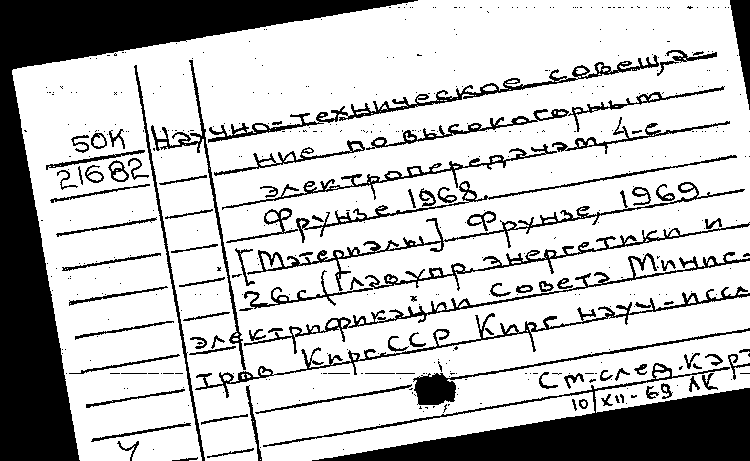 50К
21682
Научно-техническое совеща-
ние по высокогорным
электропередачам, 4-е.
Фрунзе. 1968.
[Материалы] Фрунзе, 1969.
26с. (Глав. упр. энергетики и
электрификации Совета Минис-
тров Кирг.ССР. Кирг. науч-иссл
См. след. карт
10/XII-69 ЛК